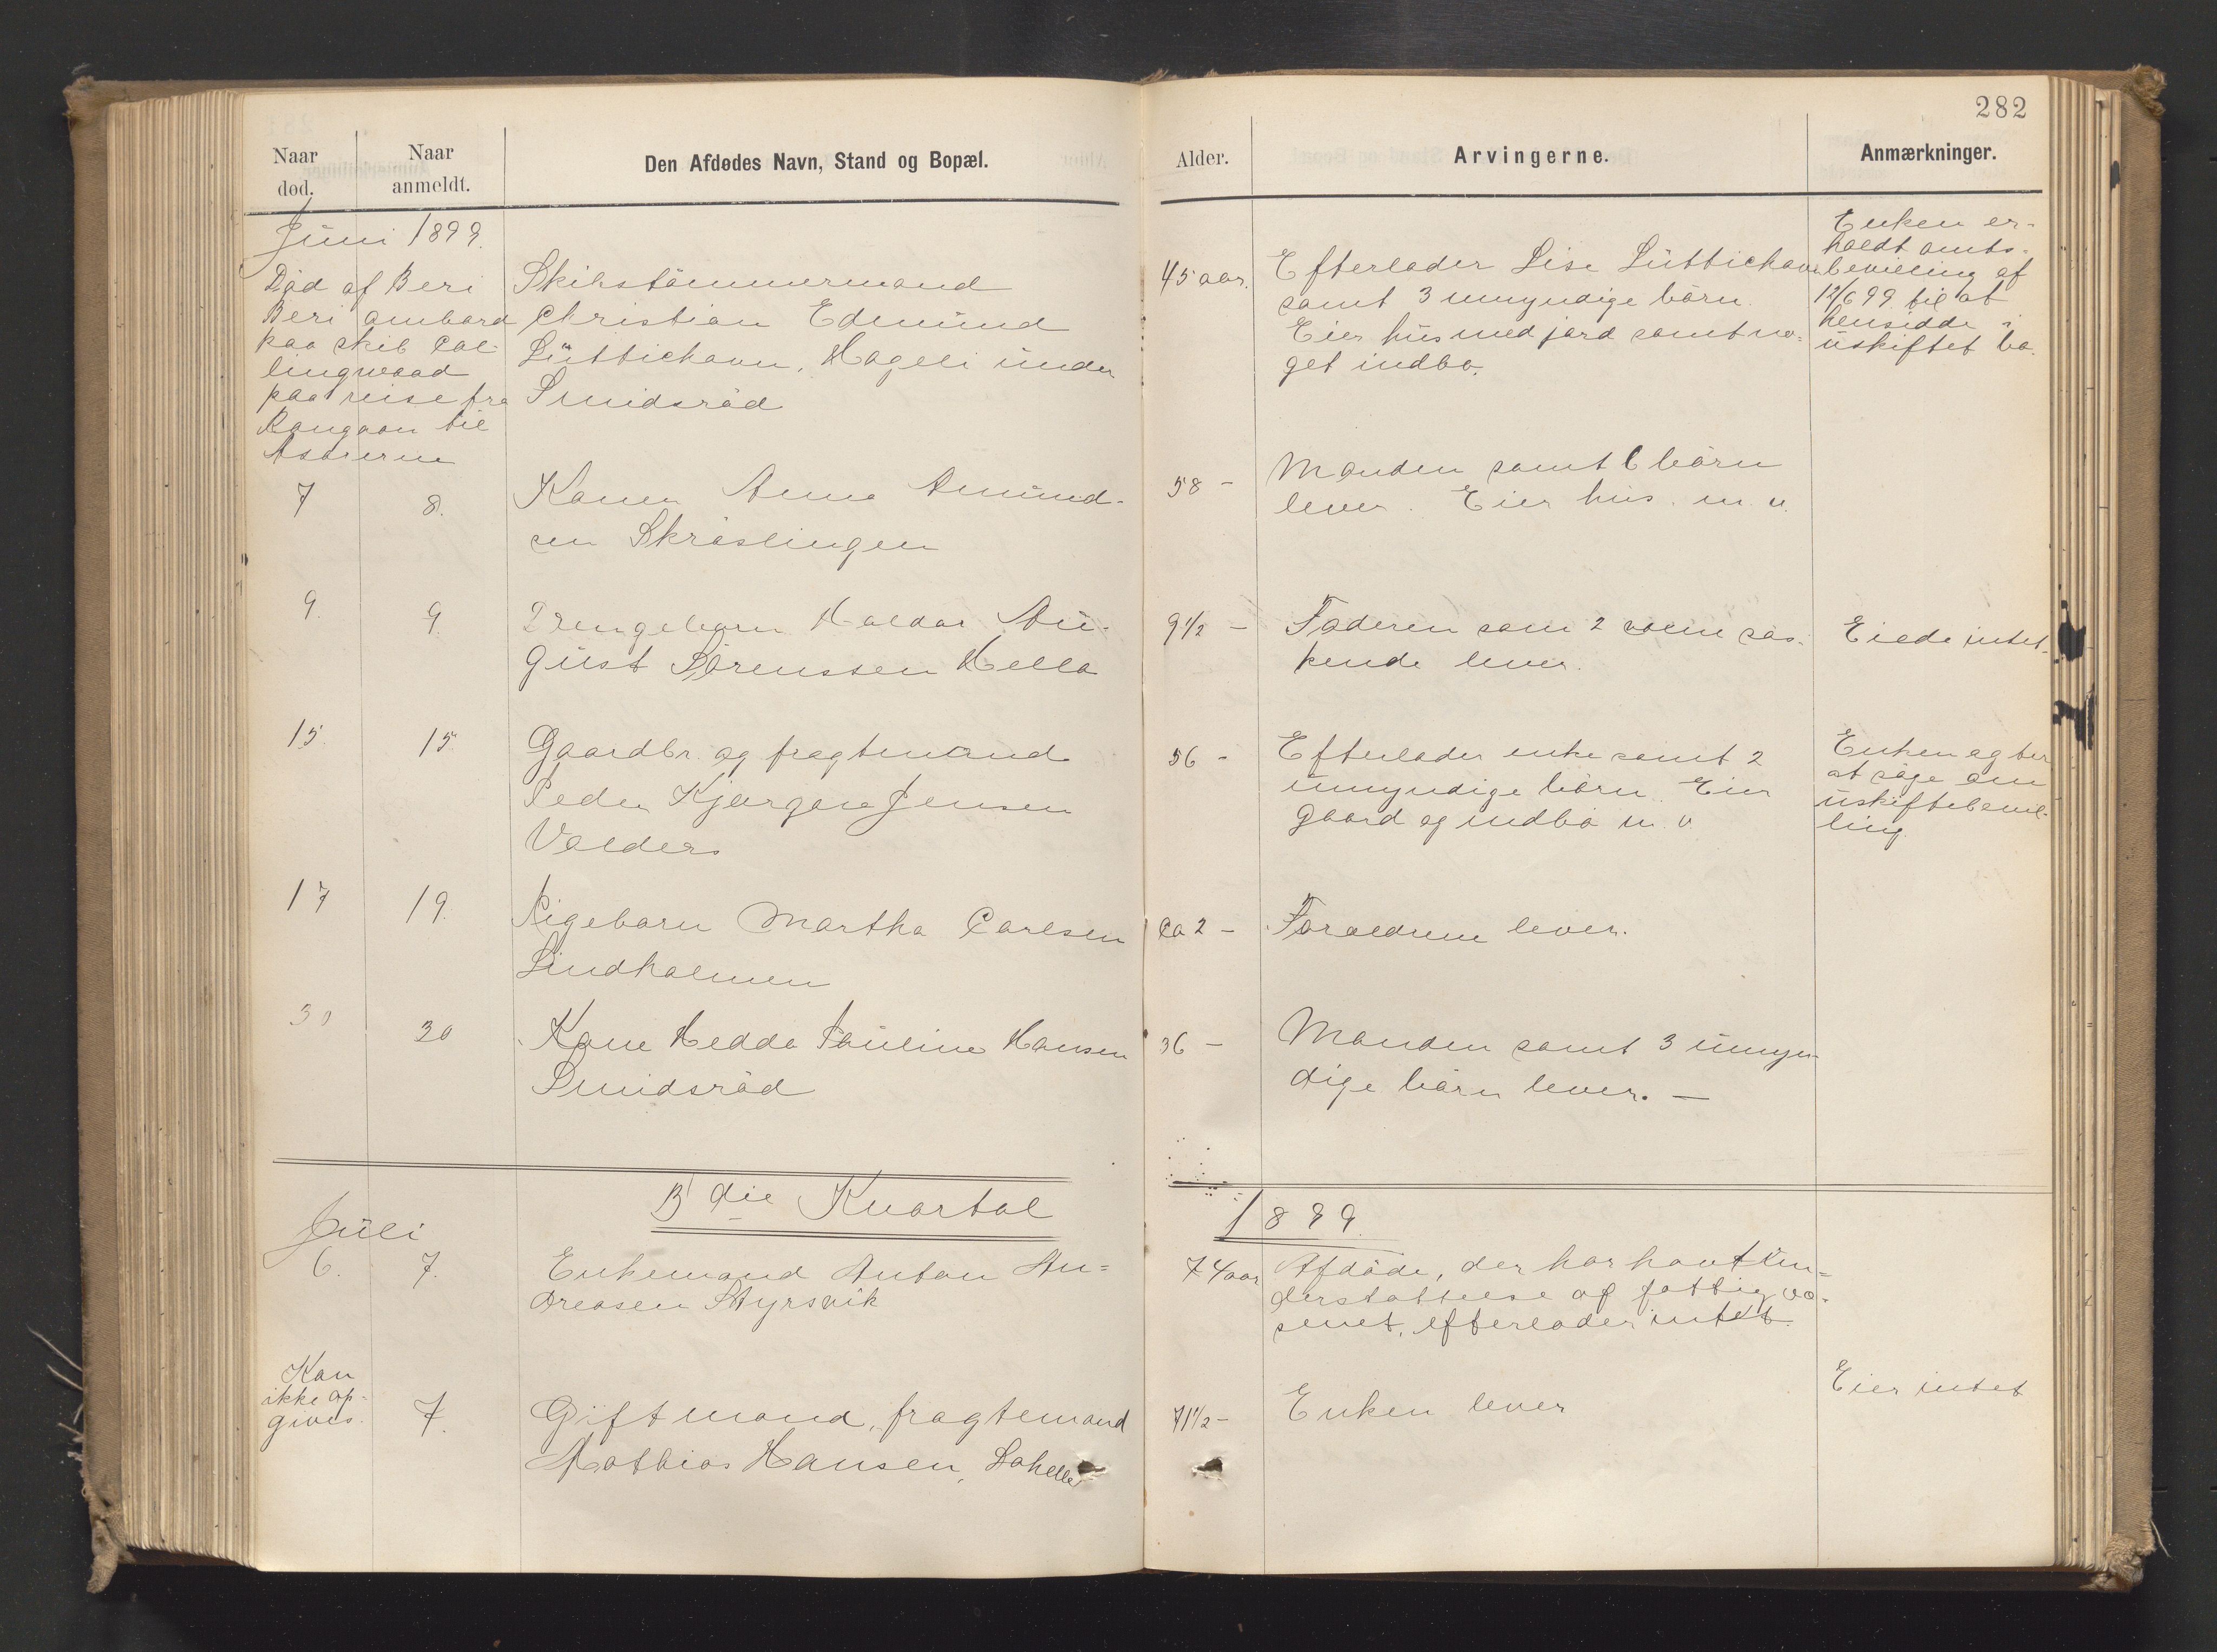 282
Naar død.
Naar anmeldt.
Den Afdødes Navn, Stand og Bopæl.
Alder.
Arvingerne.
Anmærkninger.
Juni 1899.
Död af Beri
Beri ombord
paa skib Col-
lingwood
paa reise fra
Rangoon til
Asorerne
Skibstömmermand
Christian Edmund
Lüttichaun, Hageli under
Smidsröd
45 aar.
Efterlader Lise Lüttichau
samt 3 umyndige börn.
Eier hus med jord samt no-
get indbo.
Enken er-
holdt amts-
bevilling af
12/6 99 til at
hensidde i
uskiftet bo.
7
8.
Konen Anna Amund-
sen Skröslingen
58 -
Manden samt 6 börn
lever. Eier hus. m. v.
9.
9.
Drengebarn Haldor Au-
gust Sörenssen Hella
9 1/2 -
Faderen som 2 voxne sös-
kende lever.
Eiede intet.
15.
15
Gaardbr. og fragtemand
Peder Kjørgen Jensen
Valders
56 -
Efterlader enke samt 2
umyndige börn. Eier
gaard og indbo m. v
Enken agter
at söge om
uskiftebevil-
ling.
17
19.
Pigebarn Martha Carlsen
Lindholmen
Ca 2 -
Foraeldrene lever.
30
30
Kone Hedda Pauline Hansen
Smidsröd
36 -
Manden samt 3 umyn-
dige börn lever. -
3die Kvartal
1899.
Juli
6.
7.
Enkemand Anton An-
dreasen Styrsvik
74 aar
Afdöde, der har havt un-
derstöttelse af fattigvæ-
senet, efterlader intet.
Kan
ikke op-
gives.
7.
Gift mand, fragtemand
Mathias Hansen,
71 1/2 -
Enken lever
Eier intet